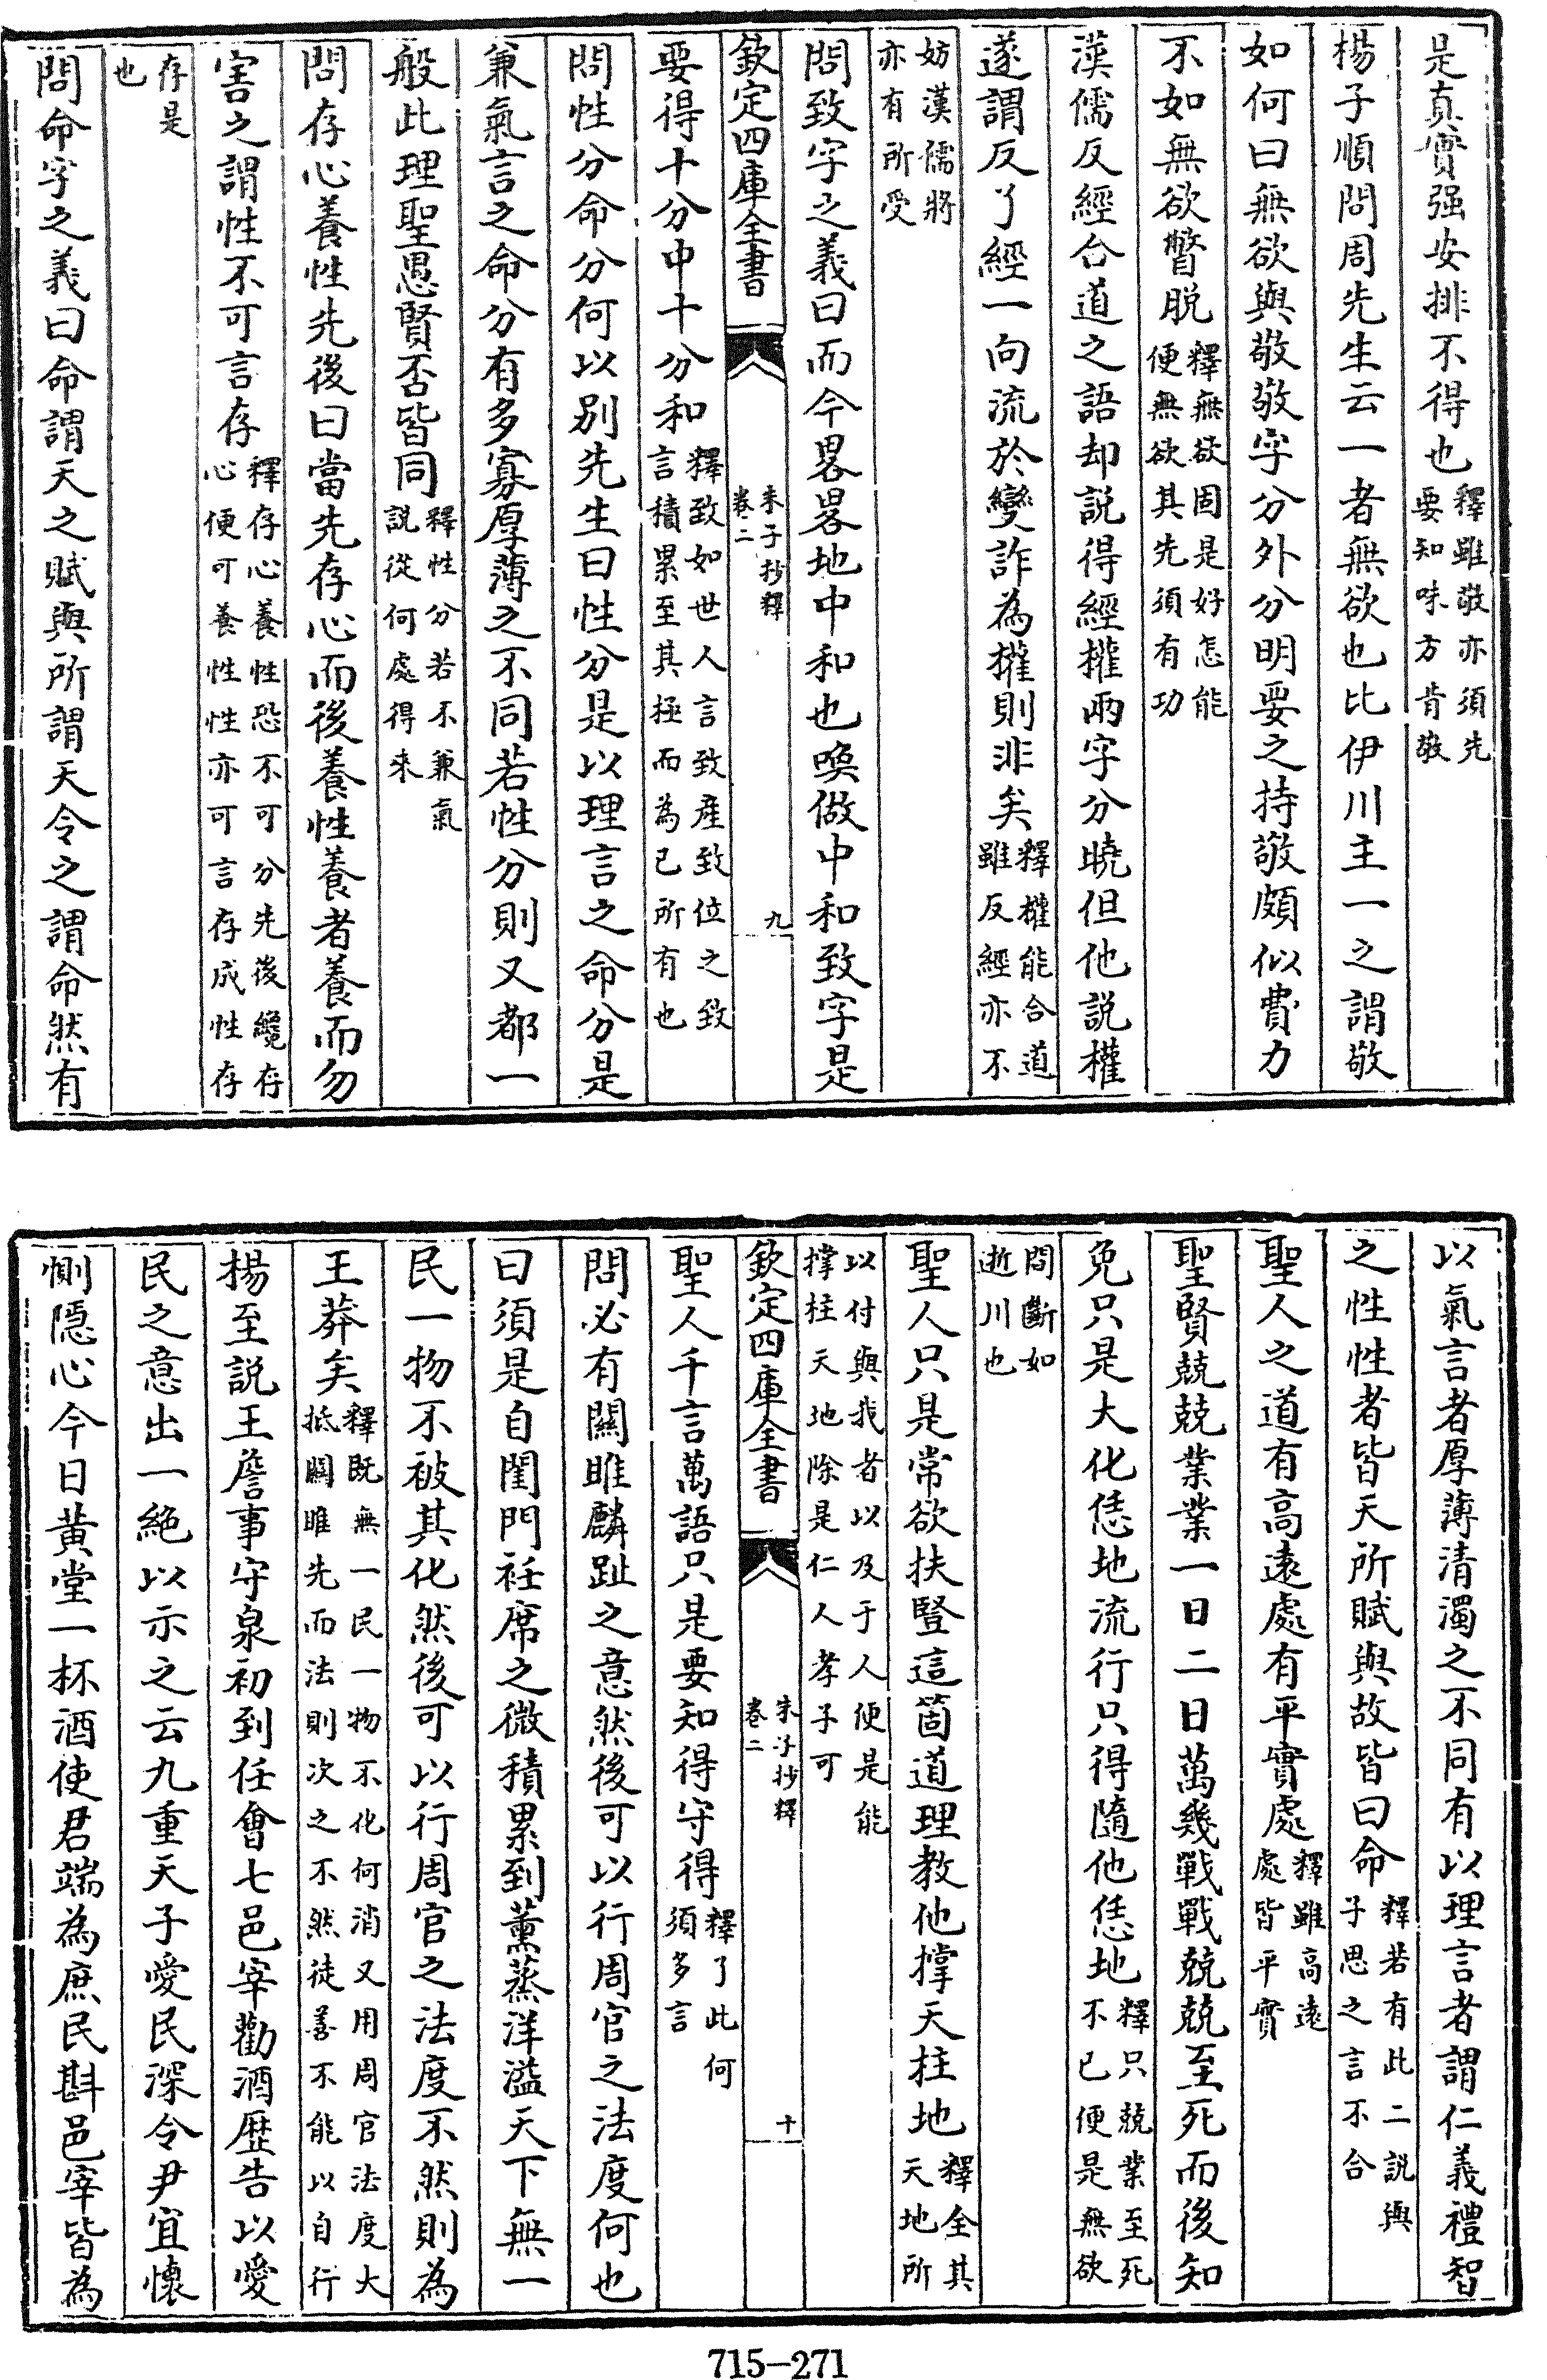 是真實强安排不得也釋雖敬亦須先要知味方肯敬
楊子順問周先生云一者無欲也比伊川主一之謂敬
如何曰無欲與敬敬字分外分明要之持敬頗似費力
不如無欲瞥脱釋無欲固是好怎能便無欲其先須有功
漢儒反經合道之語却説得經權兩字分曉但他説權
遂謂反了經一向流於變詐為權則非矣釋權能合道雖反經亦不
妨漢儒將亦有所受
問致字之義曰而今畧畧地中和也喚做中和致字是
欽定四庫全書
朱子抄釋
卷二
九
要得十分中十分和釋致如世人言致産致位之致言積累至其極而為已所有也
問性分命分何以别先生曰性分是以理言之命分是
兼氣言之命分有多寡厚薄之不同若性分則又都一
般此理聖愚賢否皆同釋性分若不兼氣説從何處得來
問存心養性先後曰當先存心而後養性養者養而勿
害之謂性不可言存釋存心養性恐不可分先後纔存心便可養性性亦可言存成性存
存是也
問命字之義曰命謂天之賦與所謂天令之謂命然有
以氣言者厚薄清濁之不同有以理言者謂仁義禮智
之性性者皆天所賦與故皆曰命釋若有此二説與子思之言不合
聖人之道有高遠處有平實處釋雖高遠處皆平實
聖賢兢兢業業一日二日萬幾戰戰兢兢至死而後知
免只是大化恁地流行只得隨他恁地釋只兢業至死不已便是無欲
間斷如逝川也
聖人只是常欲扶豎這箇道理教他撑天柱地釋全其天地所
以付與我者以及于人便是能撑柱天地除是仁人孝子可
欽定四庫全書
朱子抄釋
卷二
十
聖人千言萬語只是要知得守得釋了此何須多言
問必有關雎麟趾之意然後可以行周官之法度何也
曰須是自閨門衽席之微積累到薫蒸洋溢天下無一
民一物不被其化然後可以行周官之法度不然則為
王莽矣釋既無一民一物不化何消又用周官法度大抵關雎先而法則次之不然徒善不能以自行
楊至説王詹事守泉初到任會七邑宰勸酒歷告以愛
民之意出一絶以示之云九重天子愛民深令尹宜懷
惻隠心今日黄堂一杯酒使君端為庶民斟邑宰皆為
715-271